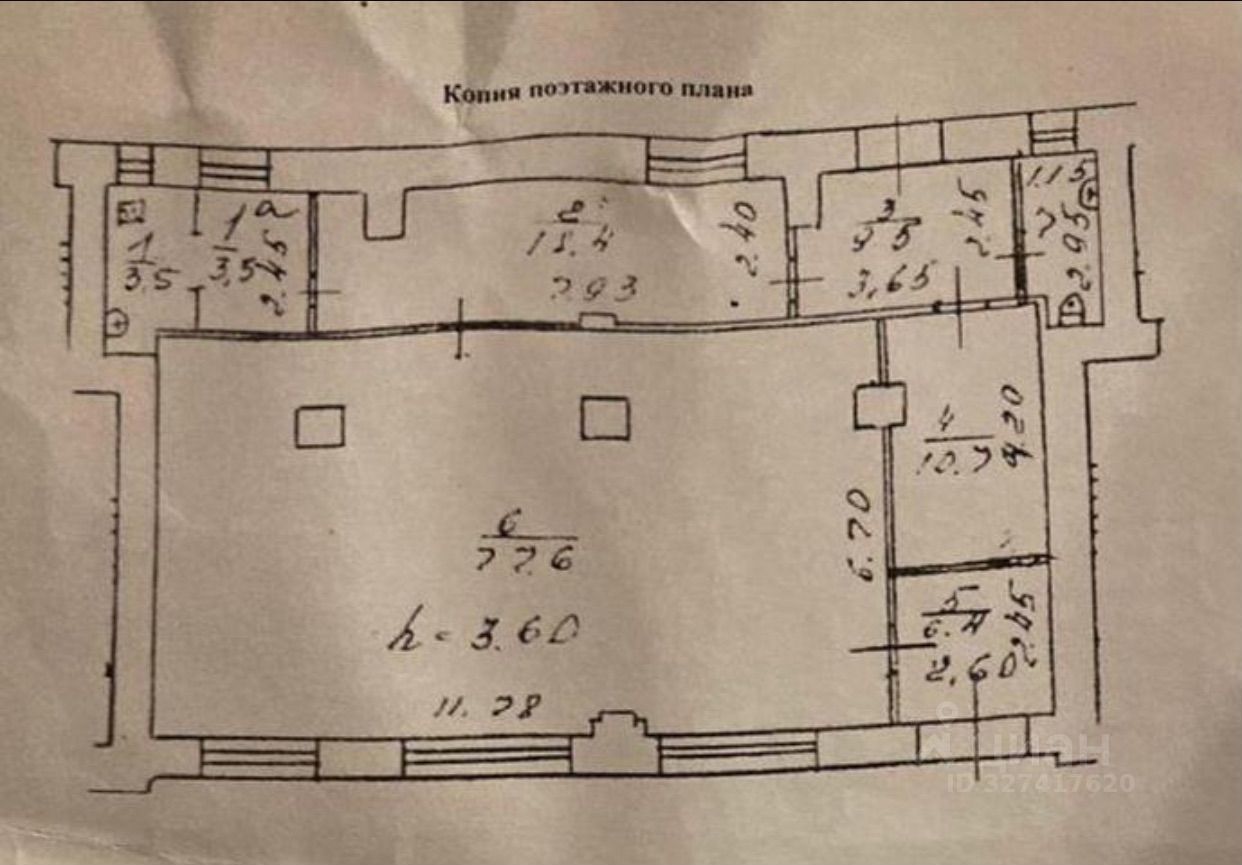 Копия поэтажного плана
1
3.5
1а
3,5
2.45
18.4
7.93
2.40
3
9 5
3,65
2.45
1.15
7
2.95
4
10.7
4.20
6
77.6
h - 3.60
11.78
6.70
5
6.4
2.60
2.45
циан
ID 327417620